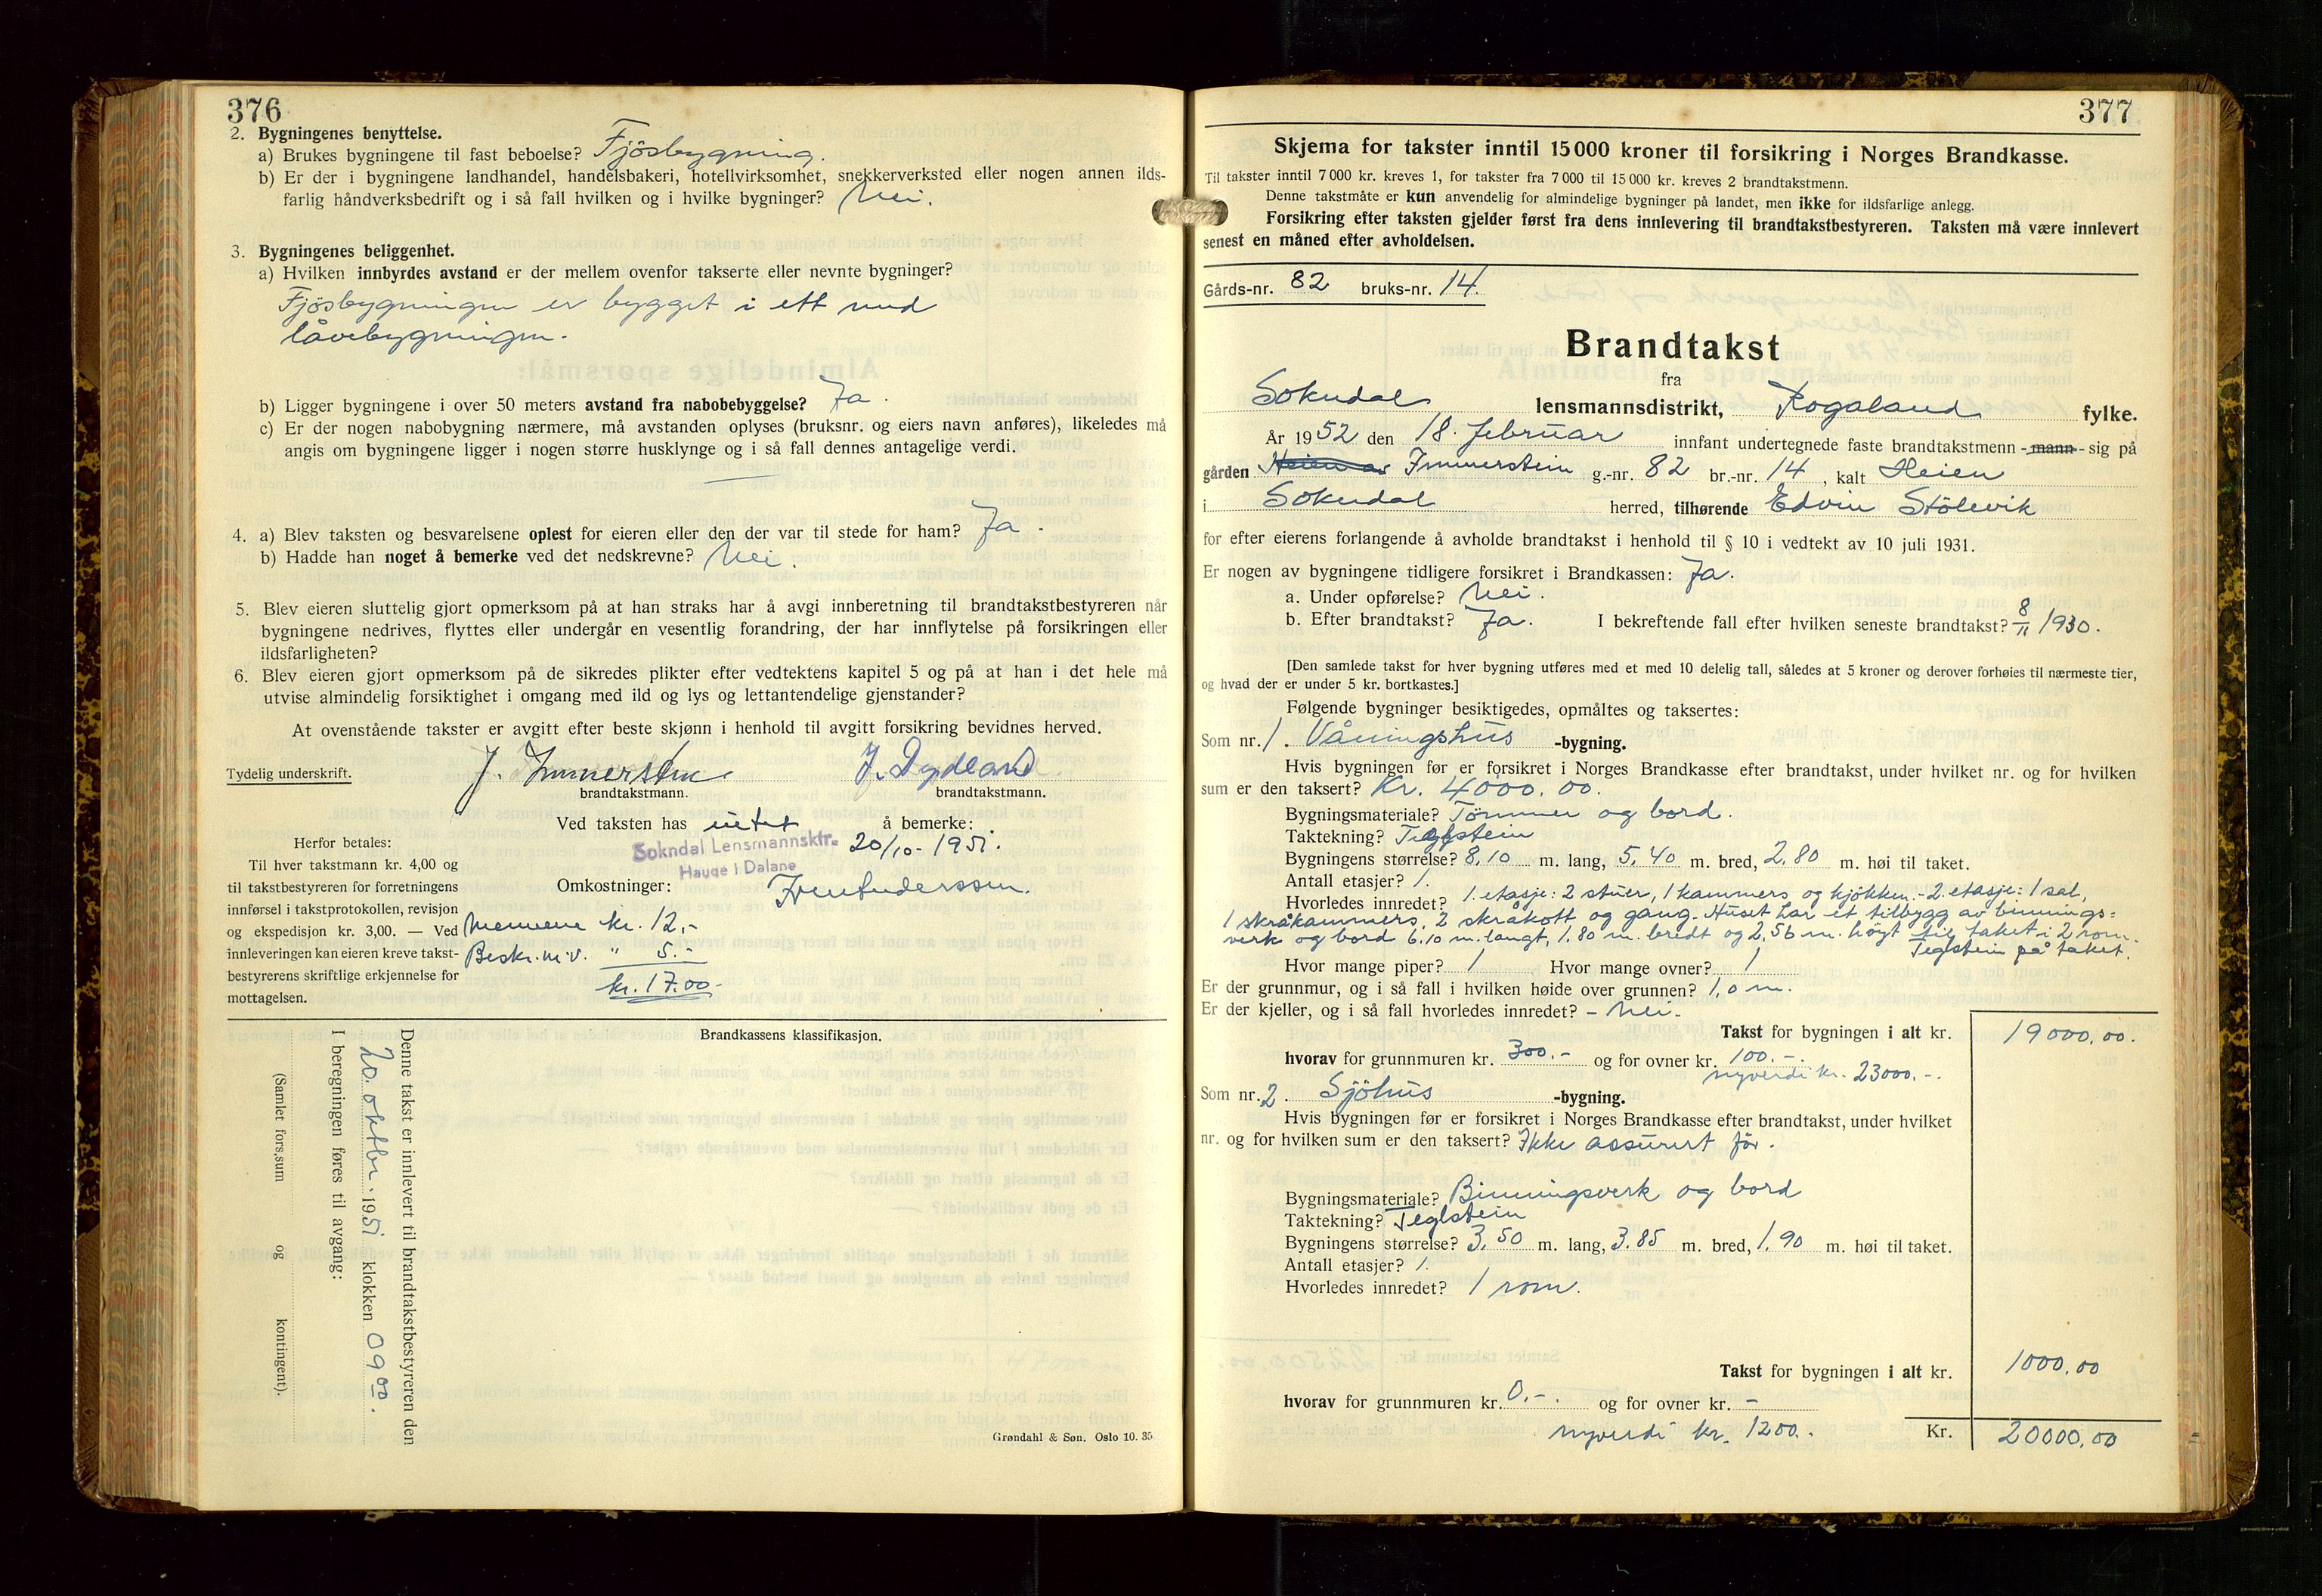 376
2. Bygningenes benyttelse.
a) Brukes bygningene til fast beboelse? Fjösbygning.
b) Er der i bygningene landhandel, handelsbakeri, hotellvirksomhet, snekkerverksted eller nogen annen ilds-
farlig håndverksbedrift og i så fall hvilken og i hvilke bygninger? Nei.
3. Bygningenes beliggenhet.
a) Hvilken innbyrdes avstand er der mellem ovenfor takserte eller nevnte bygninger?
Fjösbygningen er bygget i ett med
låvebygningen.
b) Ligger bygningene i over 50 meters avstand fra nabobebyggelse? Ja.
c) Er der nogen nabobygning nærmere, må avstanden oplyses (bruksnr. og eiers navn anføres), likeledes må
angis om bygningene ligger i nogen større husklynge og i så fall dennes antagelige verdi.
4. a) Blev taksten og besvarelsene oplest for eieren eller den der var til stede for ham? Ja.
b) Hadde han noget å bemerke ved det nedskrevne? Nei.
5. Blev eieren sluttelig gjort opmerksom på at han straks har å avgi innberetning til brandtakstbestyreren når
bygningene nedrives, flyttes eller undergår en vesentlig forandring, der har innflytelse på forsikringen eller
ildsfarligheten?
6. Blev eieren gjort opmerksom på de sikredes plikter efter vedtektens kapitel 5 og på at han i det hele må
utvise almindelig forsiktighet i omgang med ild og lys og lettantendelige gjenstander?
At ovenstående takster er avgitt efter beste skjønn i henhold til avgitt forsikring bevidnes herved.
Tydelig underskrift. J. Immerstein J. Dydland
brandtakstmann. brandtakstmann.
Ved taksten has intet å bemerke:
Sokndal Lensmannsktr. 20/10-1951.
Hauge i Dalane
Herfor betales:
Til hver takstmann kr. 4,00 og
til takstbestyreren for forretningens
innførsel i takstprotokollen, revisjon
og ekspedisjon kr. 3,00. — Ved
innleveringen kan eieren kreve takst-
bestyrerens skriftlige erkjennelse for
mottagelsen.
Omkostninger:
Mennene kr. 12,-
Beskr. m.v. " 5.-
kr. 17.00-
Brandkassens klassifikasjon.
Denne takst er innlevert til brandtakstbestyreren den
20. oktbr. 1951 klokken 09 00.
I beregningen føres til avgang:
(Samlet fors.sum og kontingent).
Grøndahl & Søn. Oslo 10. 35
377
Skjema for takster inntil 15 000 kroner til forsikring i Norges Brandkasse.
Til takster inntil 7 000 kr. kreves 1, for takster fra 7 000 til 15 000 kr. kreves 2 brandtakstmenn.
Denne takstmåte er kun anvendelig for almindelige bygninger på landet, men ikke for ildsfarlige anlegg.
Forsikring efter taksten gjelder først fra dens innlevering til brandtakstbestyreren. Taksten må være innlevert
senest en måned efter avholdelsen.
Gårds-nr. 82 bruks-nr. 14.
Brandtakst
fra
Sokndal lensmannsdistrikt, Rogaland fylke.
År 1952 den 18. februar innfant undertegnede faste brandtakstmenn - mann - sig på
gården Immerstein g.-nr. 82 br.-nr. 14, kalt Heien
i Sokndal herred, tilhørende Edvin Stölevik
for efter eierens forlangende å avholde brandtakst i henhold til § 10 i vedtekt av 10 juli 1931.
Er nogen av bygningene tidligere forsikret i Brandkassen: Ja.
a. Under opførelse? Nei.
b. Efter brandtakst? Ja. I bekreftende fall efter hvilken seneste brandtakst? 8/11 1930.
[Den samlede takst for hver bygning utføres med et med 10 delelig tall, således at 5 kroner og derover forhøies til nærmeste tier,
og hvad der er under 5 kr. bortkastes.]
Følgende bygninger besiktigedes, opmåltes og taksertes:
Som nr. 1. Våningshus -bygning.
Hvis bygningen før er forsikret i Norges Brandkasse efter brandtakst, under hvilket nr. og for hvilken
sum er den taksert? Kr. 4000.00.
Bygningsmateriale? Tömmer og bord.
Taktekning? Teglstein
Bygningens størrelse? 8,10 m. lang, 5,40 m. bred, 2,80 m. høi til taket.
Antall etasjer? 1.
Hvorledes innredet? 1. etasje: 2 stuer, 1 kammers og kjökken. - 2. etasje: 1 sal,
1 skråkammers, 2 skråkott og gang. Huset har et tilbygg av binnings=
verk og bord 6.10 m. langt, 1.80 m. bredt og 2,56 m. högt til taket i 2 rom.
Teglstein på taket.
Hvor mange piper? 1 Hvor mange ovner? 1
Er der grunnmur, og i så fall i hvilken høide over grunnen? 1,0 m.
Er der kjeller, og i så fall hvorledes innredet? - Nei.
Takst for bygningen i alt kr. 19000,00.
hvorav for grunnmuren kr. 300.- og for ovner kr. 100.-
nyverdi kr. 23000.-
Som nr. 2. Sjöhus -bygning.
Hvis bygningen før er forsikret i Norges Brandkasse efter brandtakst, under hvilket
nr. og for hvilken sum er den taksert? Ikke assurert för.
Bygningsmateriale? Binningsverk og bord
Taktekning? Teglstein
Bygningens størrelse? 3,50 m. lang, 3.85 m. bred, 1,90 m. høi til taket.
Antall etasjer? 1.
Hvorledes innredet? 1 rom.
Takst for bygningen i alt kr. 1000,00
hvorav for grunnmuren kr. 0.- og for ovner kr. -
nyverdi kr. 1200.- Kr. 20000,00